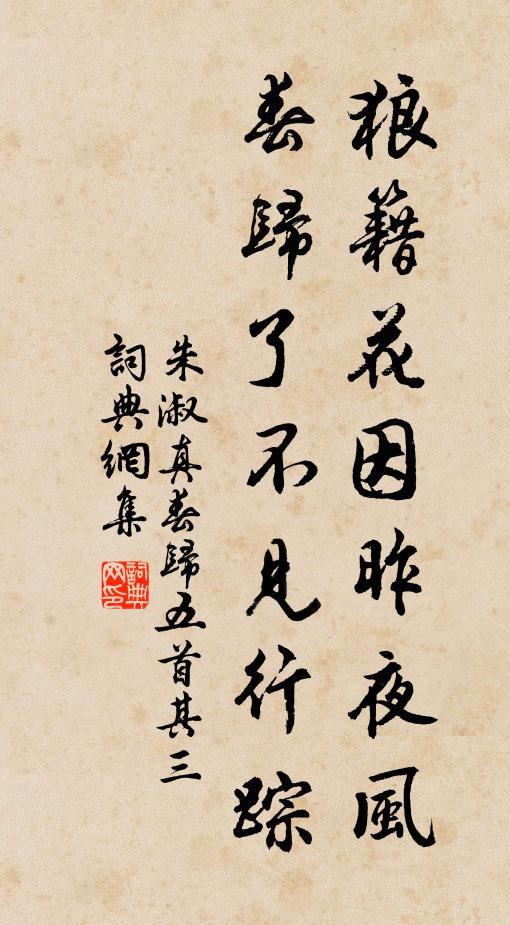 狼籍花因昨夜風
春歸了不見行踪
朱淑真春歸五首其三
詞典網集
詞典
网印